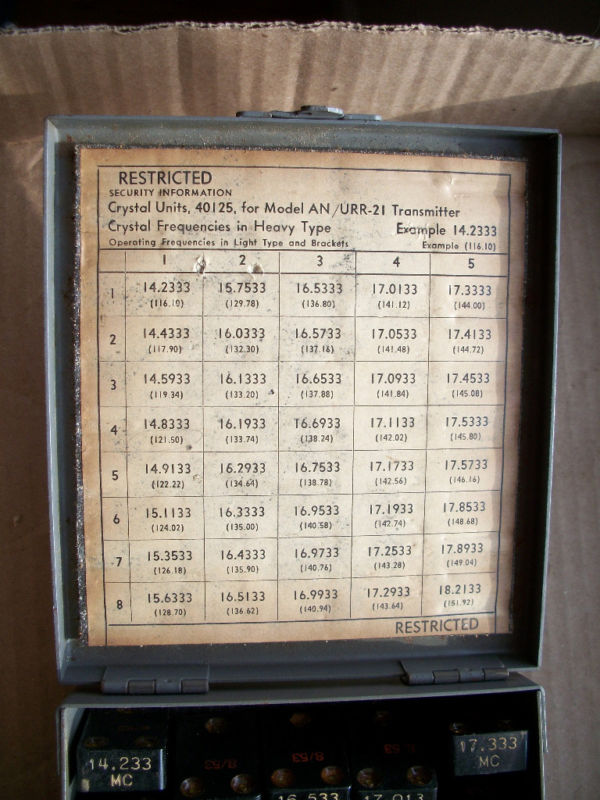 RESTRICTED
SECURITY INFORMATION
Crystal Units, 40125, for Model AN/URR-21 Transmitter
Crystal Frequencies in Heavy Type Example 14.2333
Operating Frequencies in Light Type and Brackets Example (116.10)
1 2 3 4 5
1 14.2333 15.7533 16.5333 17.0133 17.3333
(116.10) (129.78) (136.80) (141.12) (144.00)
2 14.4333 16.0333 16.5733 17.0533 17.4133
(117.90) (132.30) (137.16) (141.48) (144.72)
3 14.5933 16.1333 16.6533 17.0933 17.4533
(119.34) (133.20) (137.88) (141.84) (145.08)
4 14.8333 16.1933 16.6933 17.1133 17.5333
(121.50) (133.74) (138.24) (142.02) (145.80)
5 14.9133 16.2933 16.7533 17.1733 17.5733
(122.22) (134.64) (138.78) (142.56) (146.16)
6 15.1133 16.3333 16.9533 17.1933 17.8533
(124.02) (135.00) (140.58) (142.74) (148.68)
7 15.3533 16.4333 16.9733 17.2533 17.8933
(126.18) (135.90) (140.76) (143.28) (149.04)
8 15.6333 16.5133 16.9933 17.2933 18.2133
(128.70) (136.62) (140.94) (143.64) (151.92)
RESTRICTED
14.233
MC
8/53
8/53
53
17.333
MC
16.533
17.013